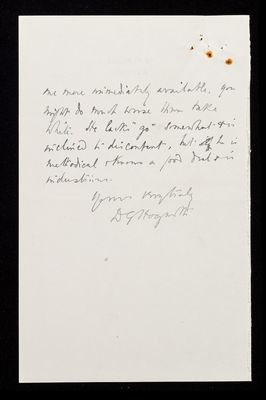 one more immediately available, you
might do much worse than take
White. He lacks "go" somewhat & is
inclined to discontent, but he is
methodical & knows a good deal & is
industrious.
Yours very truly
D G Hogarth